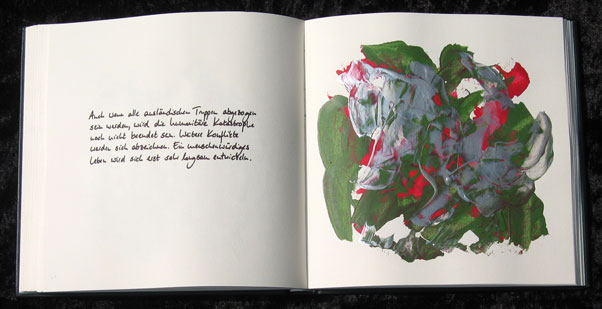 Auch wenn alle ausländischen Truppen abgezogen
sein werden, wird die humanitäre Katastrophe
noch nicht beendet sein. Weitere Konflikte
werden sich abzeichnen. Ein menschenwürdiges
Leben wird sich erst sehr langsam entwickeln.